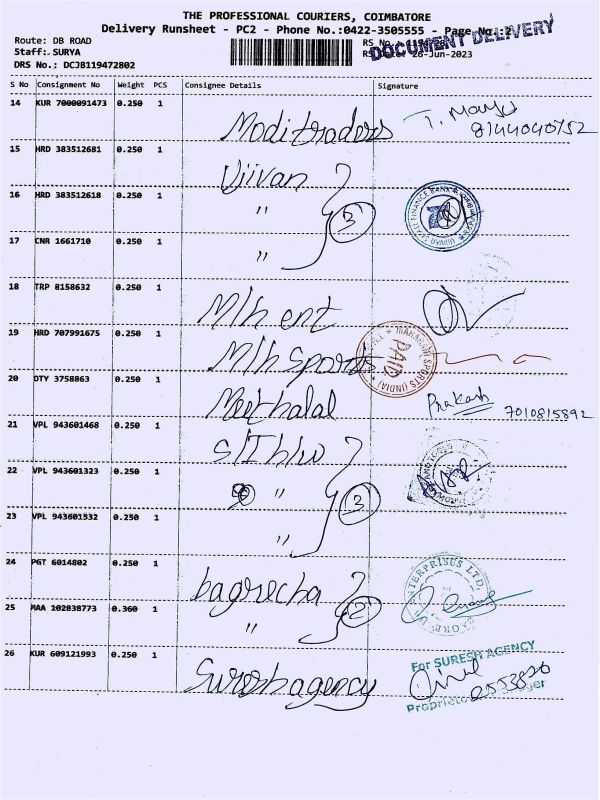 THE PROFESSIONAL COURIERS, COIMBATORE
Delivery Runsheet - PC2 - Phone No.:0422-3505555 - Page No.:2
DOCUMENT DELIVERY
Route: DB ROAD
Staff: SURYA
RS Date: 26-Jun-2023
DRS No.: DCJB119472802
S No Consignment No Weight PCS Consignee Details Signature
14 KUR 7000091473 0.250 1
Modi traders T. Manju
8144040752
15 HRD 383512681 0.250 1
Ujivan
16 HRD 383512618 0.250 1
" 3
17 CNR 1661710 0.250 1
"
18 TRP 8158632 0.250 1
M/h ent
19 HRD 707991675 0.250 1
M/h Sports MAHARSHI SPORTS (INDIA) PAID
20 DTY 3758863 0.250 1
Meethalal Prakash 7010815892
21 VPL 943601468 0.250 1
22 VPL 943601323 0.250 1
" 3
23 VPL 943601532 0.250 1
"
24 PGT 6014802 0.250 1
bagrecha
25 MAA 102838773 0.360 1
" 2
26 KUR 609121993 0.250 1
Suresh agency
For SURESH AGENCY